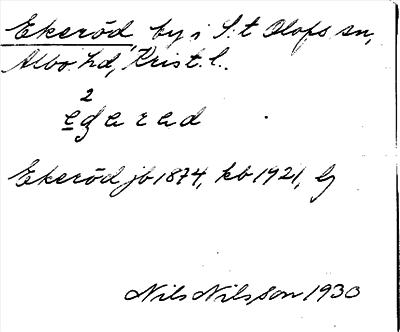 Ekeröd, by i S:t Olofs sn,
Albo hd, Krist. l.
2
egarad
Ekeröd jb 1874, kb 1921, Gj
Nils Nilsson 1930